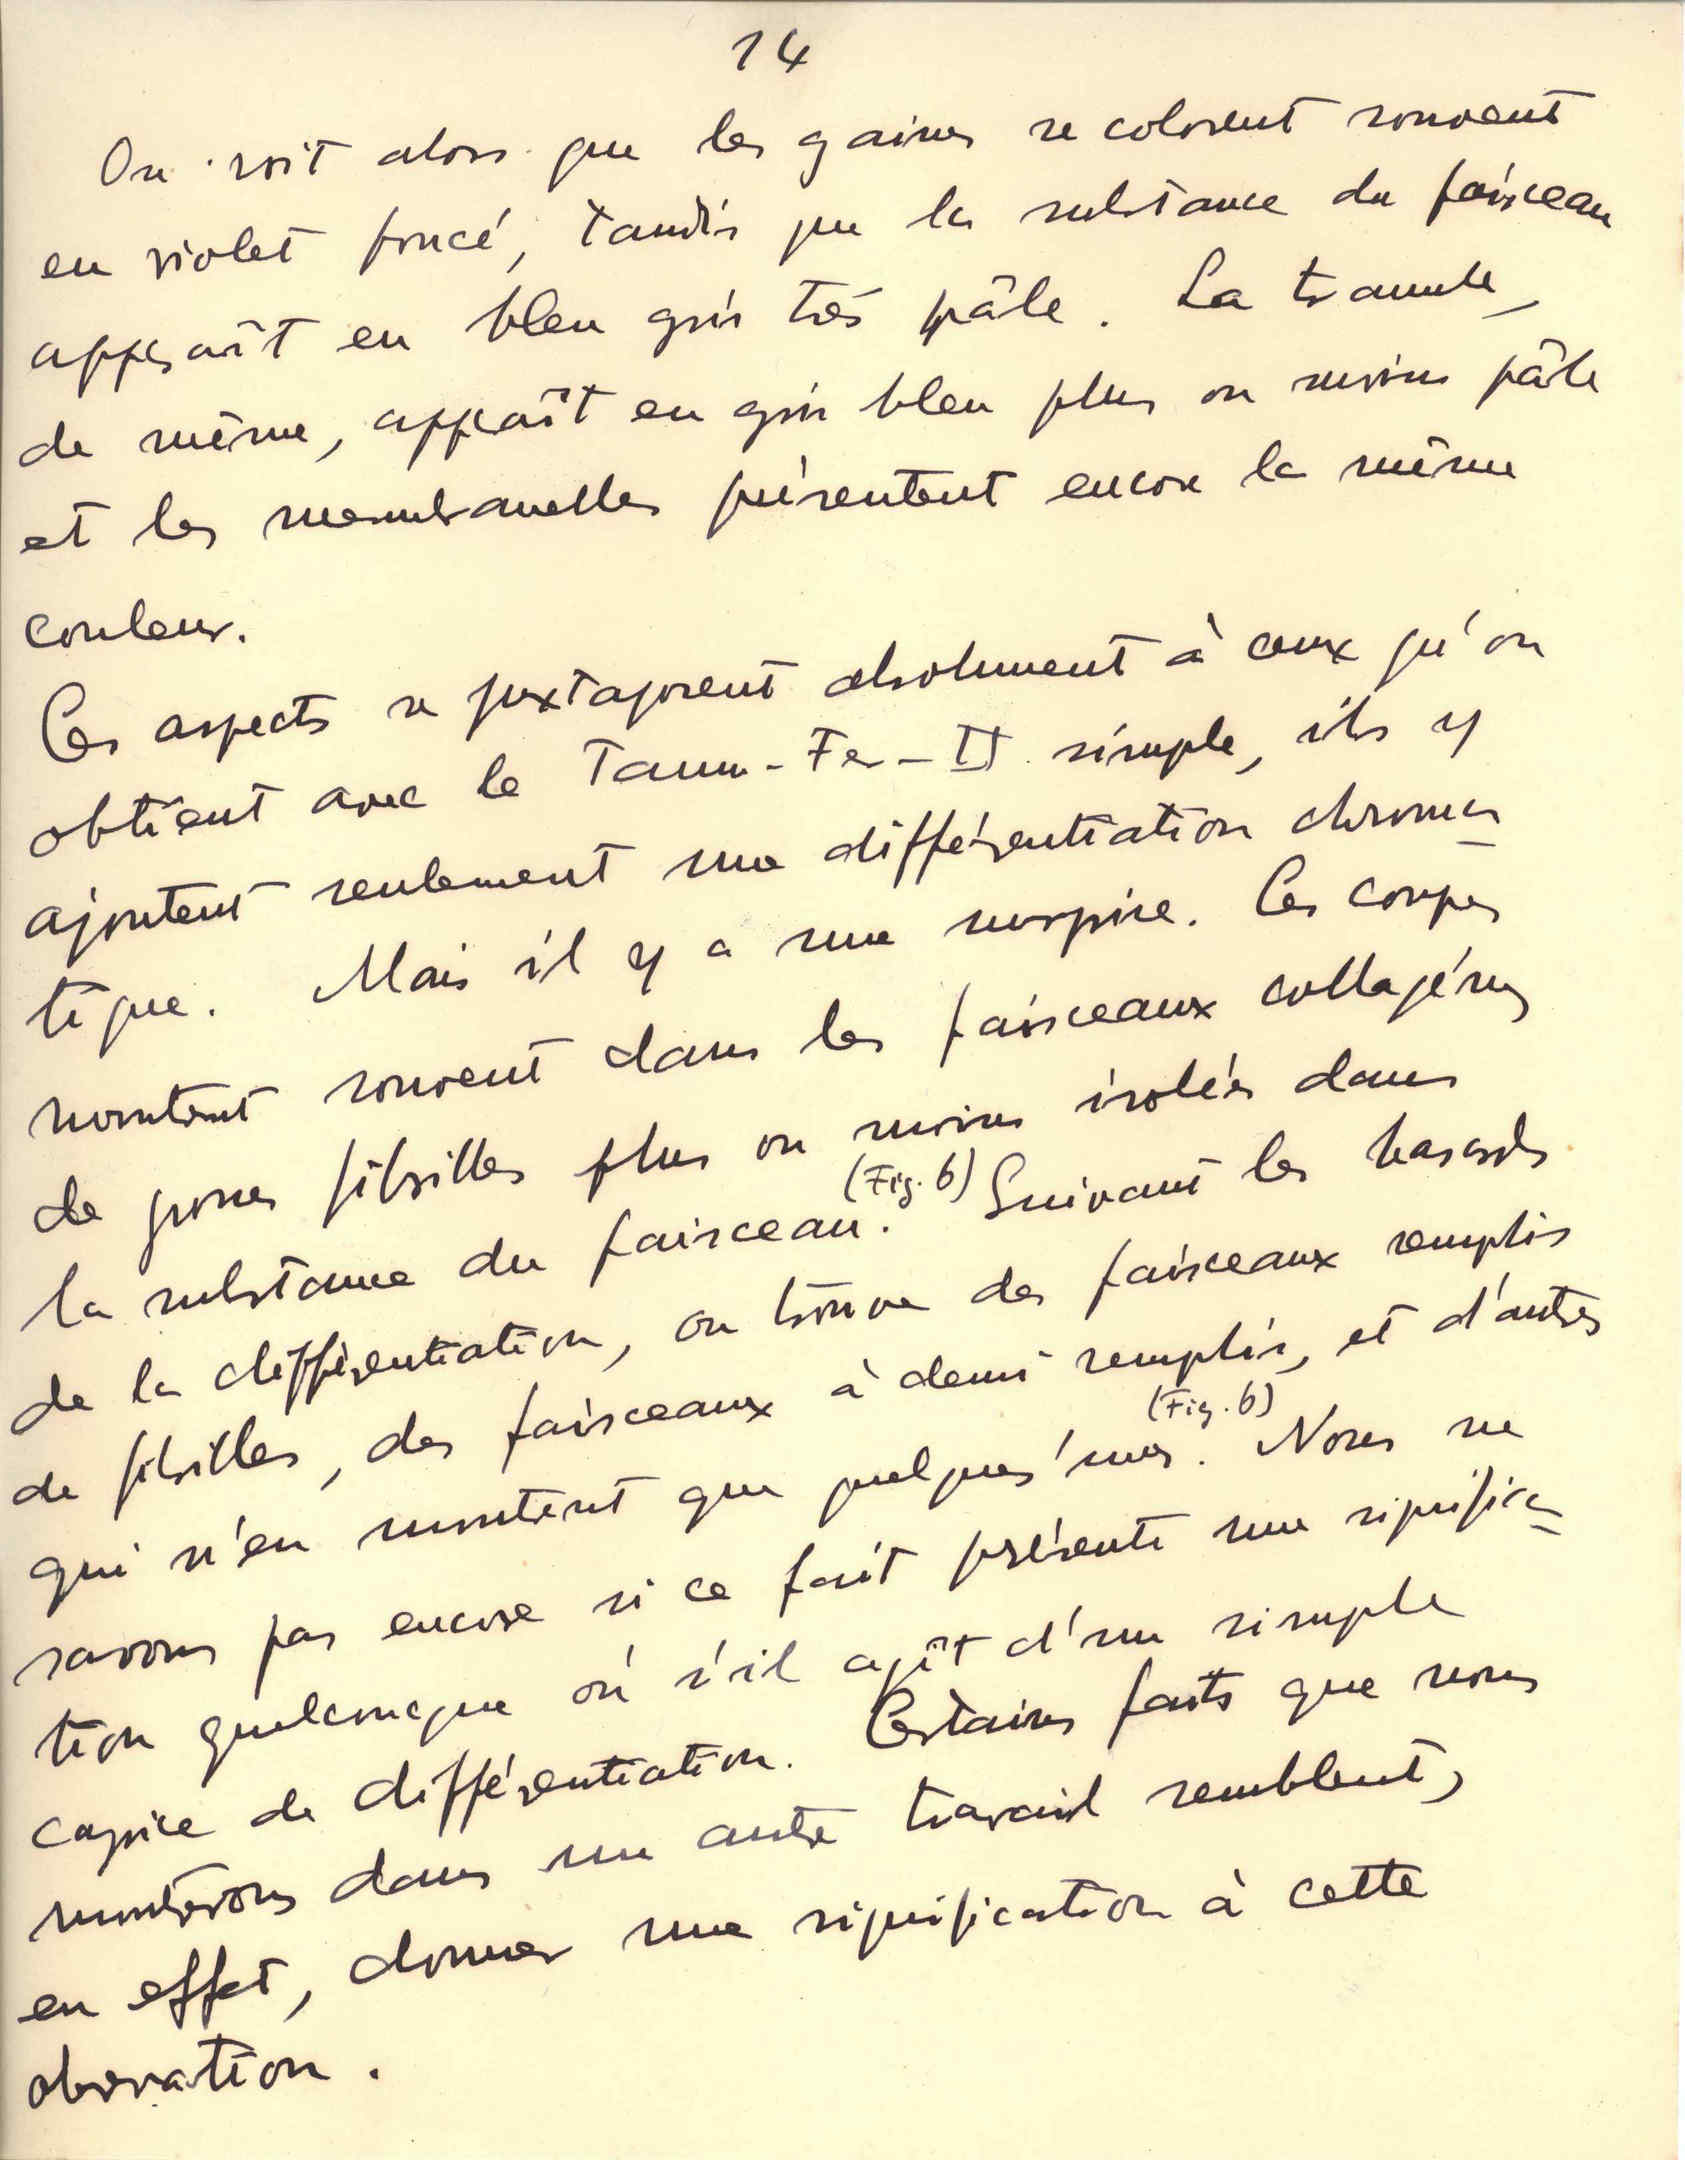 14
On voit alors que les gaines se colorent souvent
en violet foncé, tandis que la substance du faisceau
apparaît en bleu gris très pâle. La trame,
de même, appaît en gris bleu plus ou moins pâle
et les membranelles présentent encore la même
couleur.
Ces aspects se juxtaposent absolument à ceux qu'on
obtient avec le Tann-Fer-II simple, ils y
ajoutent seulement une différentiation chroma-
tique. Mais il y a une surprise. Les coupes
montrent souvent dans les faisceaux collagénes
de grosses fibrilles plus ou moins isolées dans
la substance du faisceau. (Fig. 6) Suivant les hasards
de la différentiation, on trouve des faisceaux remplis
de fibrilles, des faisceaux à demi remplis, et d'autres
qui n'en montrent que quelques'unes. (Fig. 6) Nous ne
savons pas encore si ce fait présente une significa=
tion quelconque où s'il agît d'un simple
caprice de différentiation. Certains faits que nous
montrerons dans un autre travail semblent,
en effet, donner une signification à cette
observation.